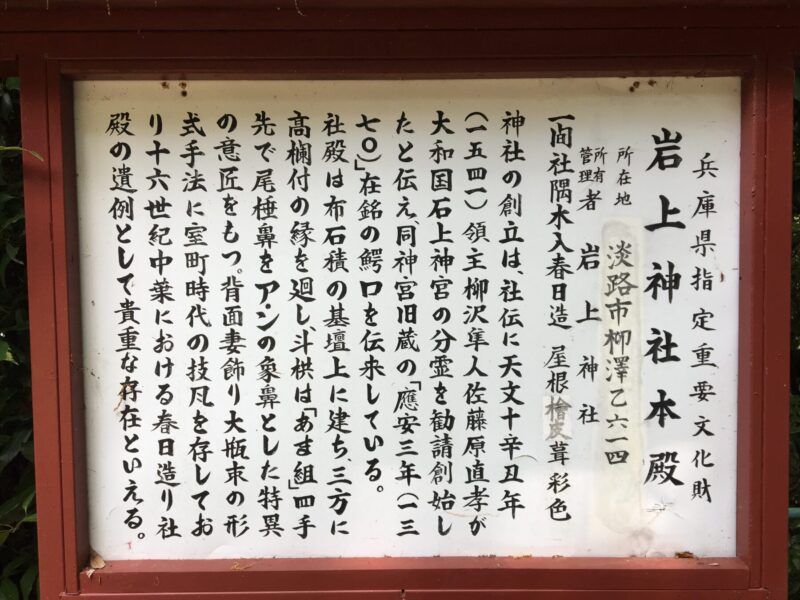 兵庫県指定重要文化財
岩上神社本殿
所在地 淡路市柳澤乙六一四
所有管理者 岩上神社
一間社隅木入春日造 屋根檜皮葺彩色
神社の創立は、社伝に天文十辛丑年
(一五四一)領主柳沢隼人佐藤原直孝が
大和国石上神宮の分霊を勧請創始し
たと伝え、同神宮旧蔵の「應安三年(一三
七〇)」在銘の鰐口を伝来している。
社殿は布石積の基壇上に建ち、三方に
高欄付の縁を廻し、斗栱は「あま組」四手
先で尾棰鼻をアンの象鼻とした特異
の意匠をもつ。背面妻飾り大瓶束の形
式手法に室町時代の技凡を存してお
り十六世紀中葉における春日造り社
殿の遺例として貴重な存在といえる。